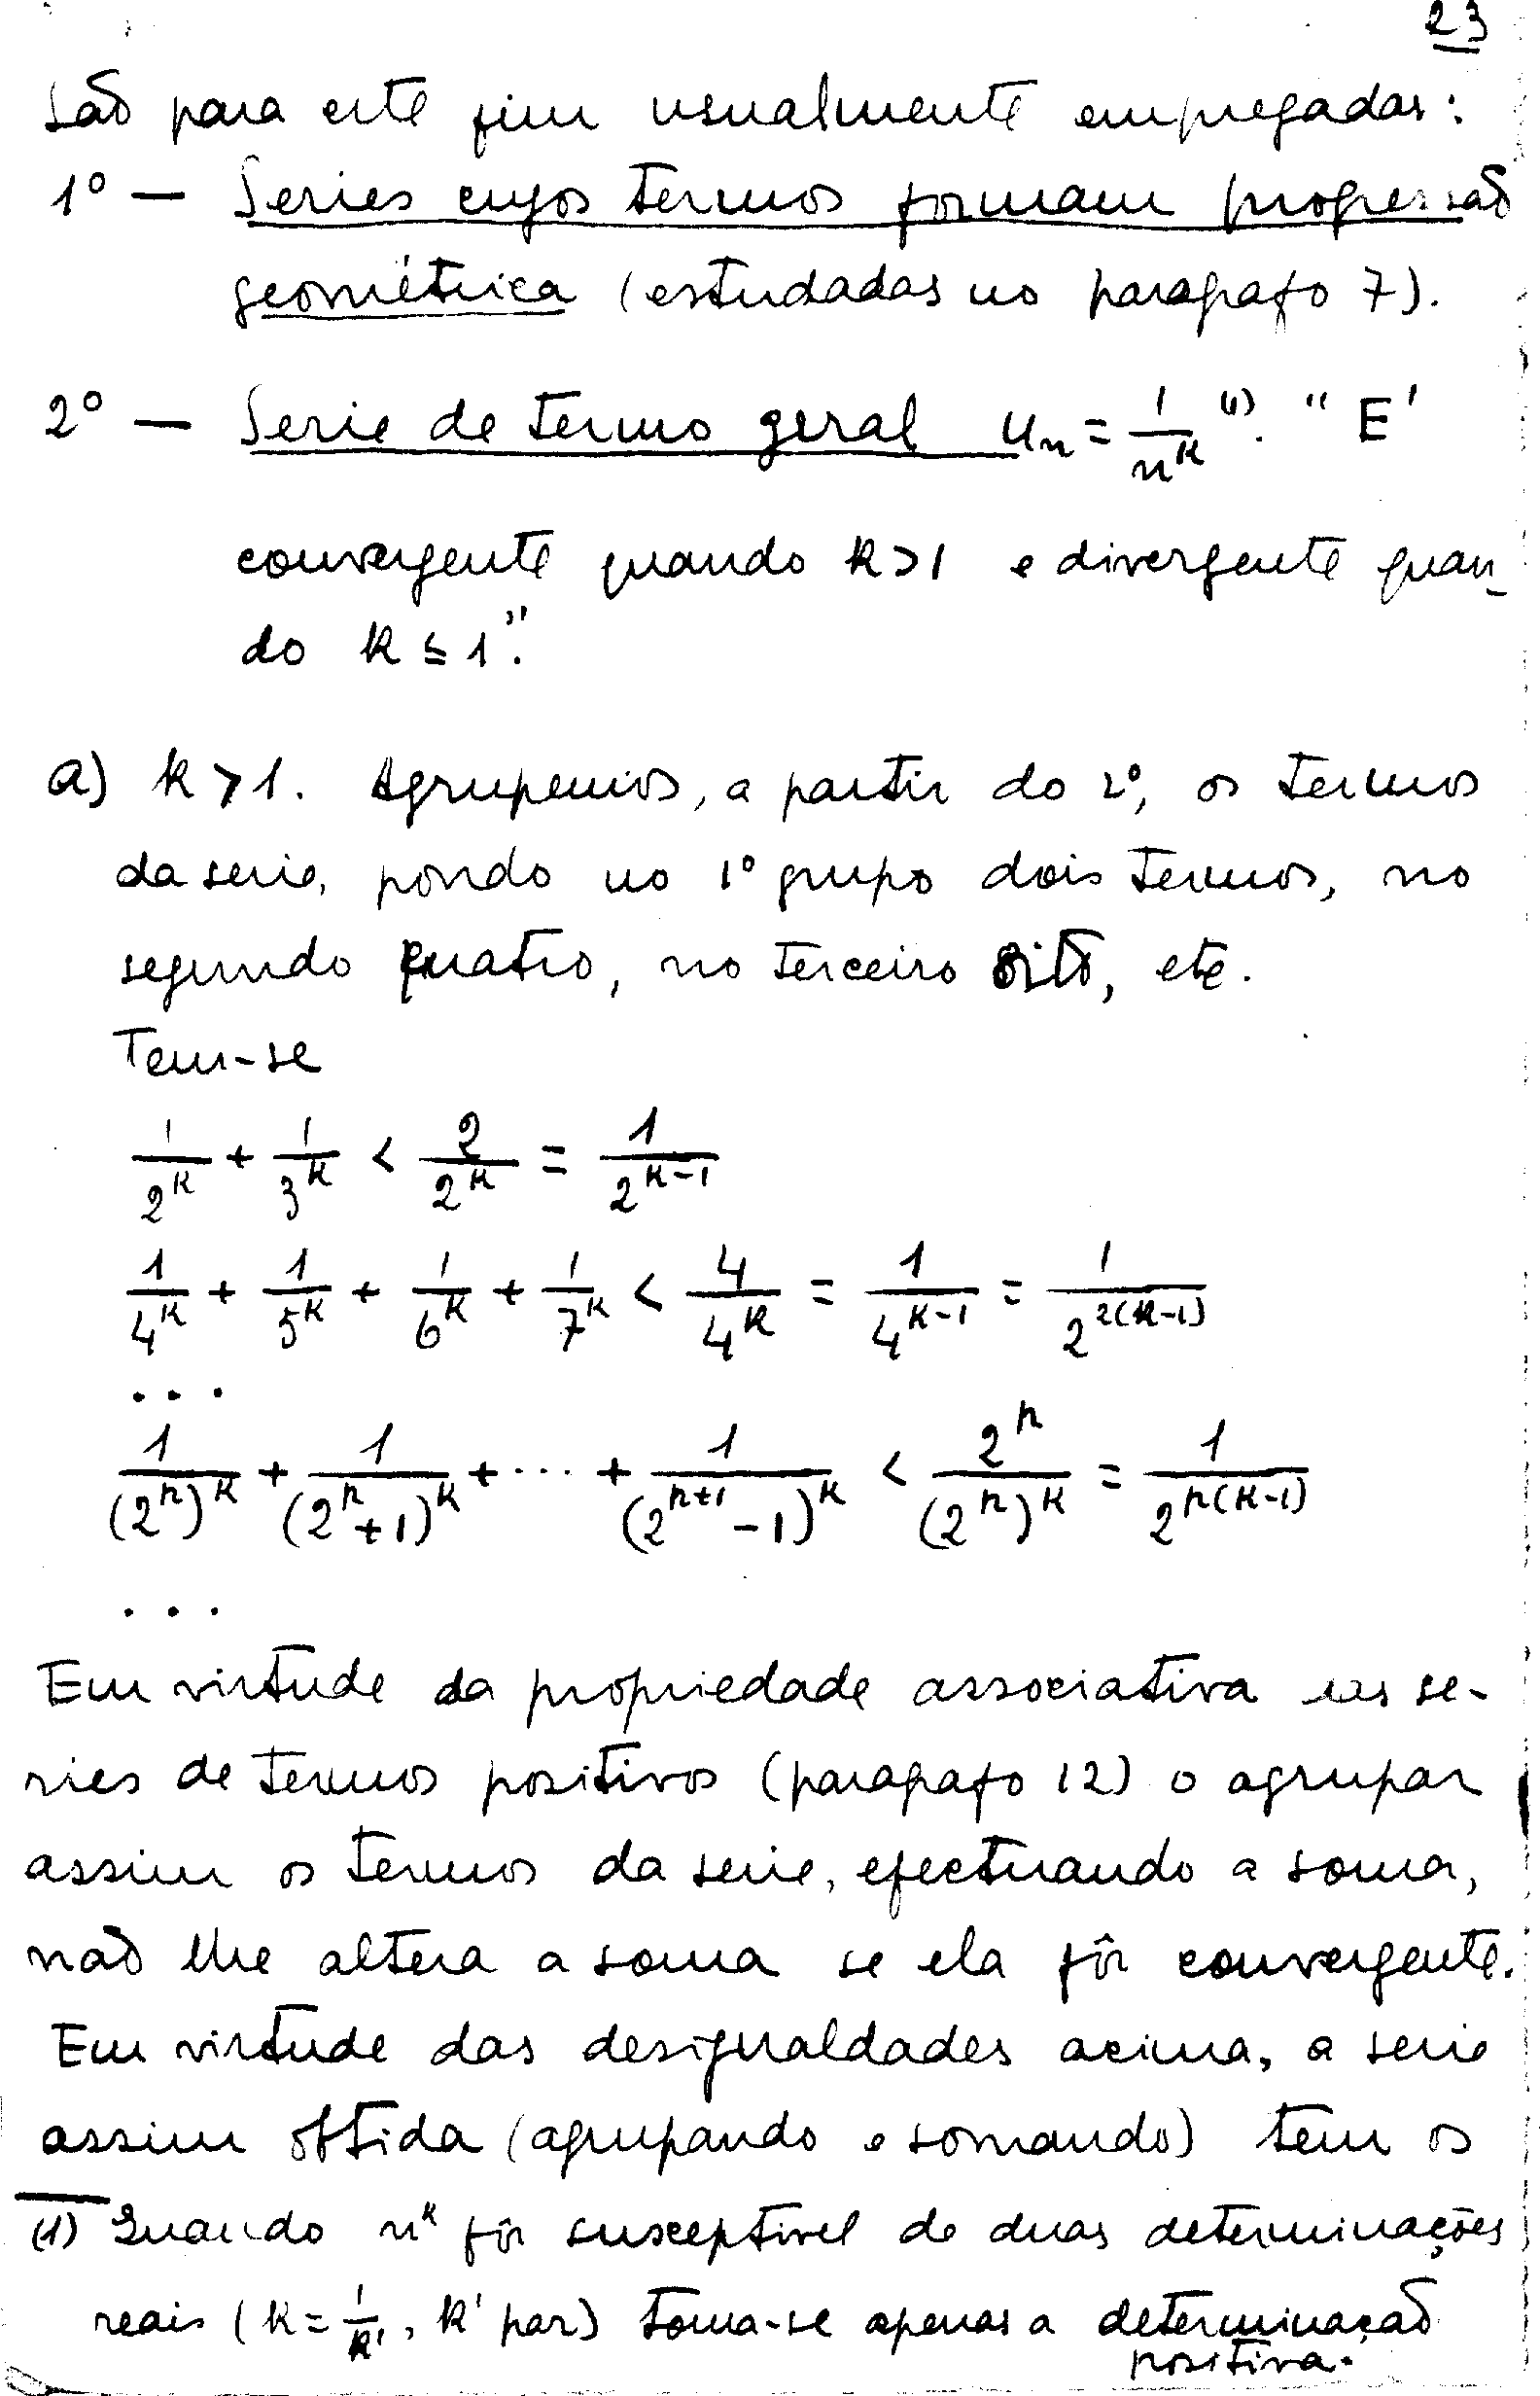 23
são para este fim usualmente empregadas:
1º — Series cujos termos formam progressão
geométrica (estudadas no paragrafo 7).
2º — Serie de termo geral u_n = 1/n^k (1). " E'
convergente quando k>1 e divergente quan-
do k ≤ 1".
a) k > 1. Agrupemos, a partir do 2º, os termos
da serie, pondo no 1º grupo dois termos, no
segundo quatro, no terceiro oito, etc.
Tem-se
1/2^k + 1/3^k < 2/2^k = 1/2^{k-1}
1/4^k + 1/5^k + 1/6^k + 1/7^k < 4/4^k = 1/4^{k-1} = 1/2^{2(k-1)}
...
1/(2^n)^k + 1/(2^n+1)^k + ... + 1/(2^{n+1}-1)^k < 2^n/(2^n)^k = 1/2^{n(k-1)}
...
Em virtude da propriedade associativa nas se-
ries de termos positivos (paragrafo 12) o agrupar
assim os termos da serie, efectuando a soma,
não lhe altera a soma se ela fôr convergente.
Em virtude das desigualdades acima, a serie
assim obtida (agrupando e somando) tem os
(1) Quando n^k fôr susceptivel de duas determinações
reais (k = 1/k', k' par) toma-se apenas a determinação
positiva.